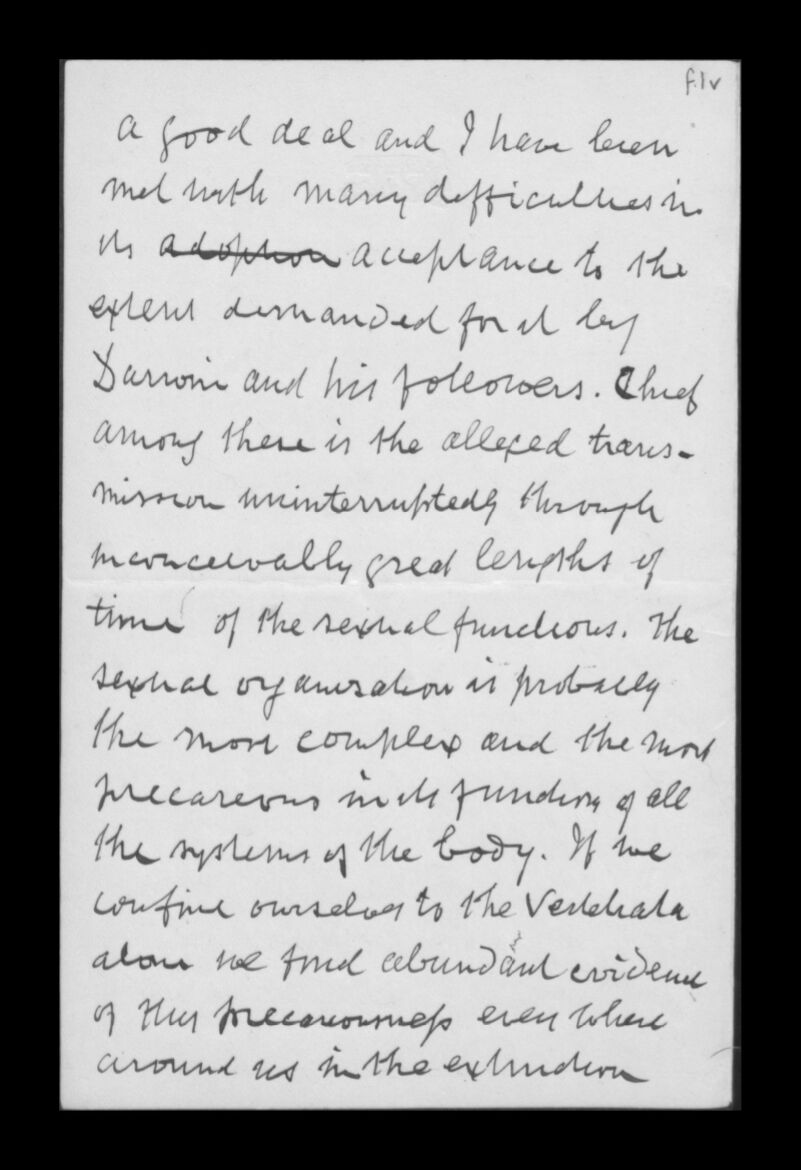 f.1v
a good deal and I have been
met with many difficulties in
its adoption acceptance to the
extent demanded for it by
Darwin and his followers. Chief
among these is the alleged trans-
mission uninterruptedly through
inconceivably great lengths of
time of the sexual functions. The
sexual organisation is probably
the most complex and the most
precareous in its functions of all
the systems of the body. If we
confine ourselves to the Vertebrata
alone we find abundant evidence
of this precariousness every where
around us in the extinction